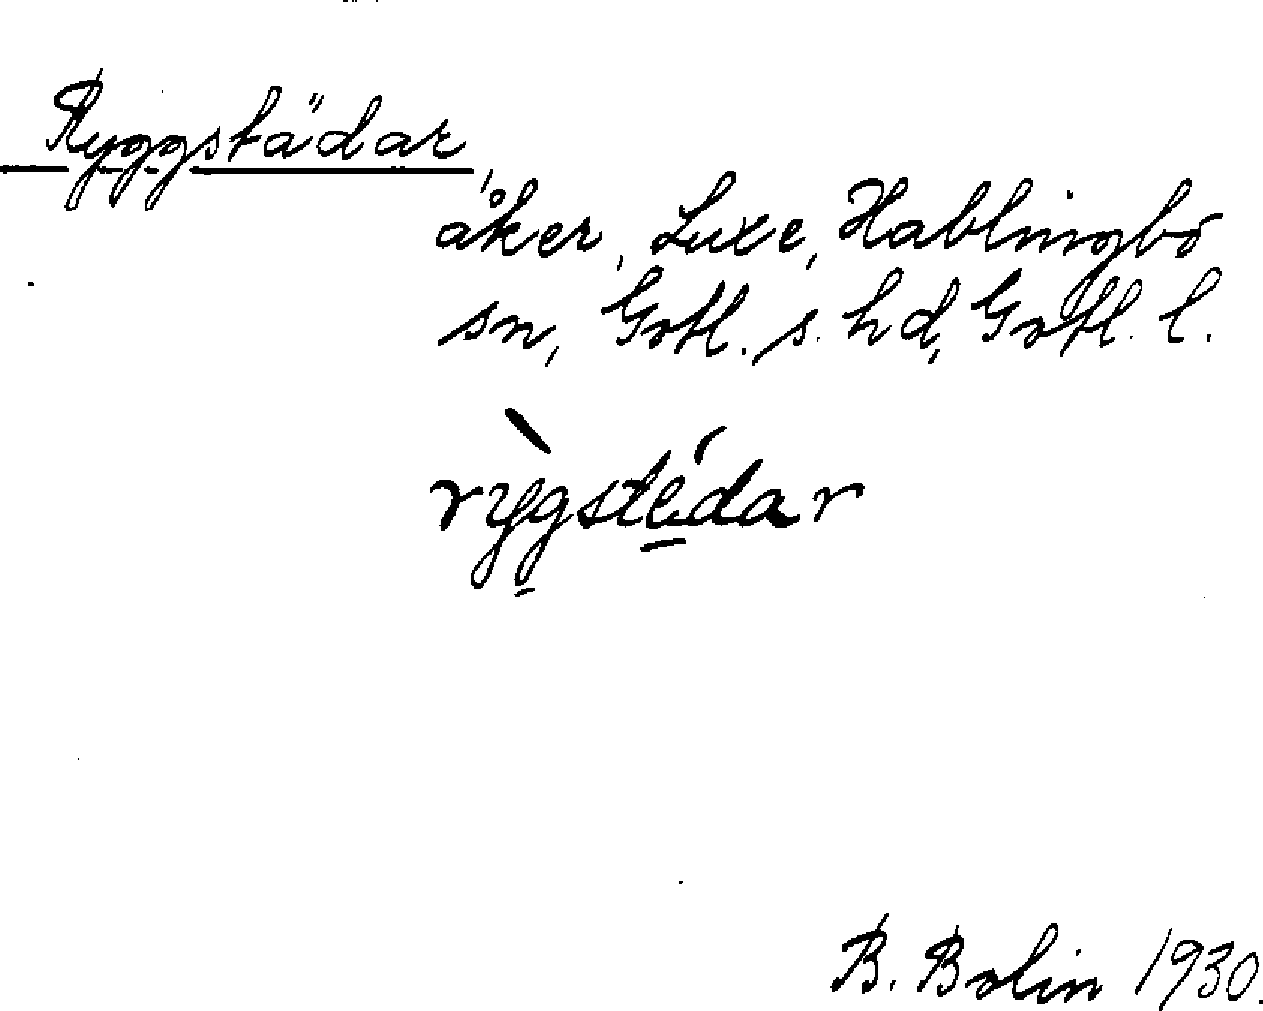 Ryggstädar,
åker, Luxe, Hablingbo
sn, Gotl. s. hd, Gotl. l.
rỳgstédar
B. Bolin 1930.